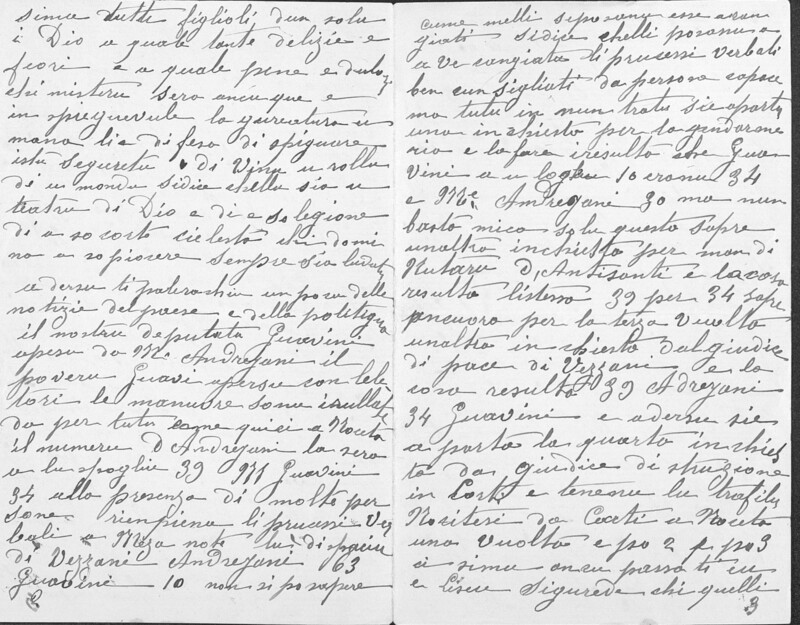 simu tutti figlioli d'un solu
i Dio a quale tante delizie e
fiori e a quale pene e dulo
chi misteru sera ancu que e
in spieguevule la
mana li e di fesa di spiguare
ista segureta di Vinu u rollu
di u mondu sidice chellu sia u
teatru di Dio e di e so legione
di a so corte cieleste chi domi
na a so piacere sempre sia ludatu
adersu ti parlerachiu un pocu delle
notizie del paese e della pulitiqua
il nostru deputatu Guavini
apersu da Mr Andrezani il
poveru Guavi apersu con lele
tori le manuvre sonu
da per tutu come quici a Noceta
il numeru D Andrezani la sera
a lu spogliu 39 M Guavini
34 alla presenza di molte per
sone rienpienu li prucessi Ver
bali a Meza note
di Vezzani Andrezani 63
Guavini 10 non si po sapere
cume melli si posanu esse aran
giati sidice chelli posanu a
a ve cangiatu li prucessi verbali
ben cunsigliati da persona capace
ma tutu in nun tratu sie apertu
una inchiesta per la gendarme
ria e la fare iresulta che Gua
vini a u logeu 10 cranu 34
e Mr Andrezani 30 ma nun
basta mica solu questa sapre
unaltra inchiesta per man di
Nutaru D,Antisanti e la cosa
resulta listessa 39 per 34 sapre
ancuora per la terza vuolta
unaltra inchiesta dal giudice
di pace di Vezzani e la
cosa resulta 39 Adrezani
34 Guavini e adersu sie
aperta la quarta inchies
ta da giudice di struzione
in Corti e tenenu la trafila
Nociteri da Corti a Noceta
una vuolta e po 2 e po 3
ci simu ancu passati eu
e Liseu Sigurede chi quelli
3